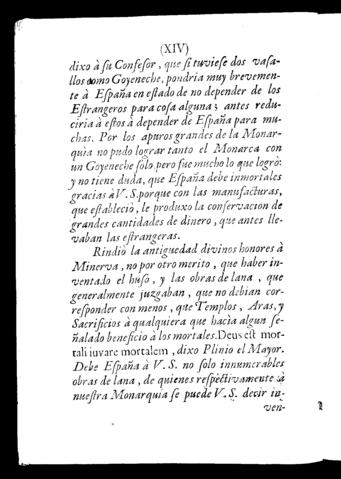 (XIV)
dixo à ſu Confeſor, que ſi tuvieſe dos vaſa-
llos como Goyeneche, pondria muy brevemen-
te à Eſpaña en eſtado de no depender de los
Eſtrangeros para coſa alguna; antes redu-
ciria à eſtos à depender de Eſpaña para mu-
chas. Por los apuros grandes de la Monar-
quia no pudo lograr tanto el Monarca con
un Goyeneche ſolo pero fue mucho lo que logrò:
y no tiene duda, que Eſpaña debe inmortales
gracias à V. S. porque con las manufacturas,
que eſtableciò, le produxo la conſervacion de
grandes cantidades de dinero, que antes lle-
vaban las eſtrangeras.
Rindiò la antiguedad divinos honores à
Minerva, no por otro merito, que haber in-
ventado el huſo, y las obras de lana, que
generalmente juzgaban, que no debian cor-
reſponder con menos, que Templos, Aras, y
Sacrificios à qualquiera que hacia algun ſe-
ñalado beneficio à los mortales. Deus eſt mor-
tali iuvare mortalem, dixo Plinio el Mayor.
Debe Eſpaña à V. S. no ſolo innumerables
obras de lana, de quienes reſpectivamente à
nueſtra Monarquia ſe puede V. S. decir in-
ven-